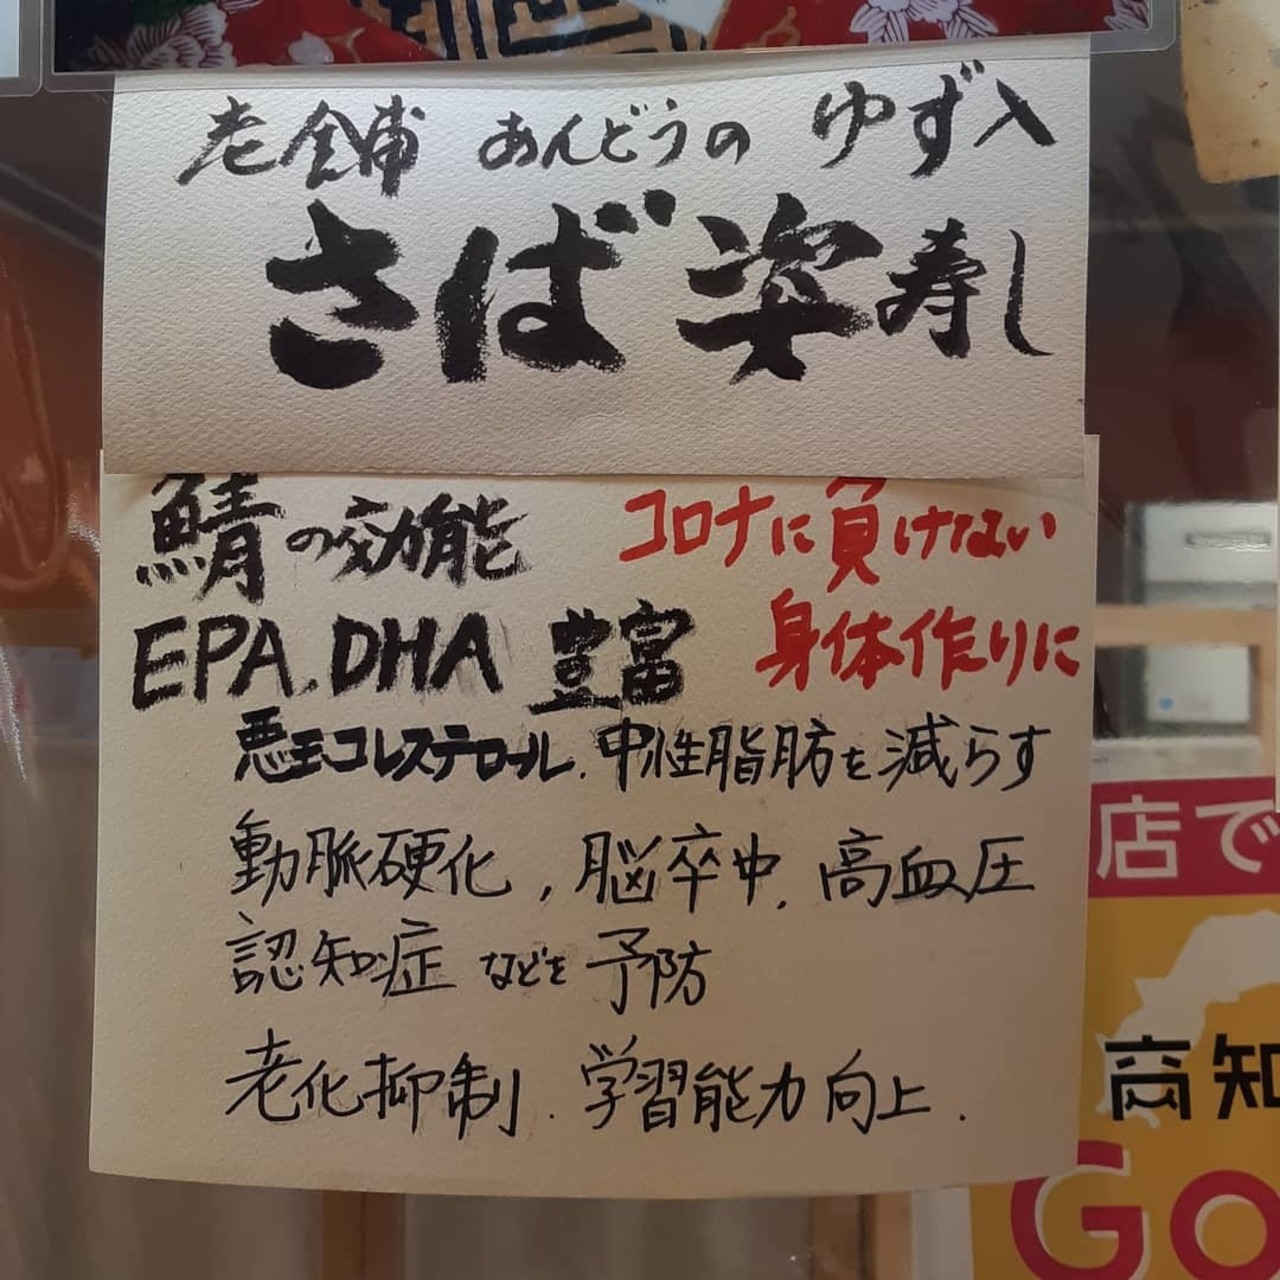 老舗 あんどうの ゆず入
さば姿寿し
鯖の効能
コロナに負けない
身体作りに
EPA.DHA 豊富
悪玉コレステロール.中性脂肪を減らす
動脈硬化,脳卒中.高血圧
認知症などを予防
老化抑制.学習能力向上.
店で
高知
Go